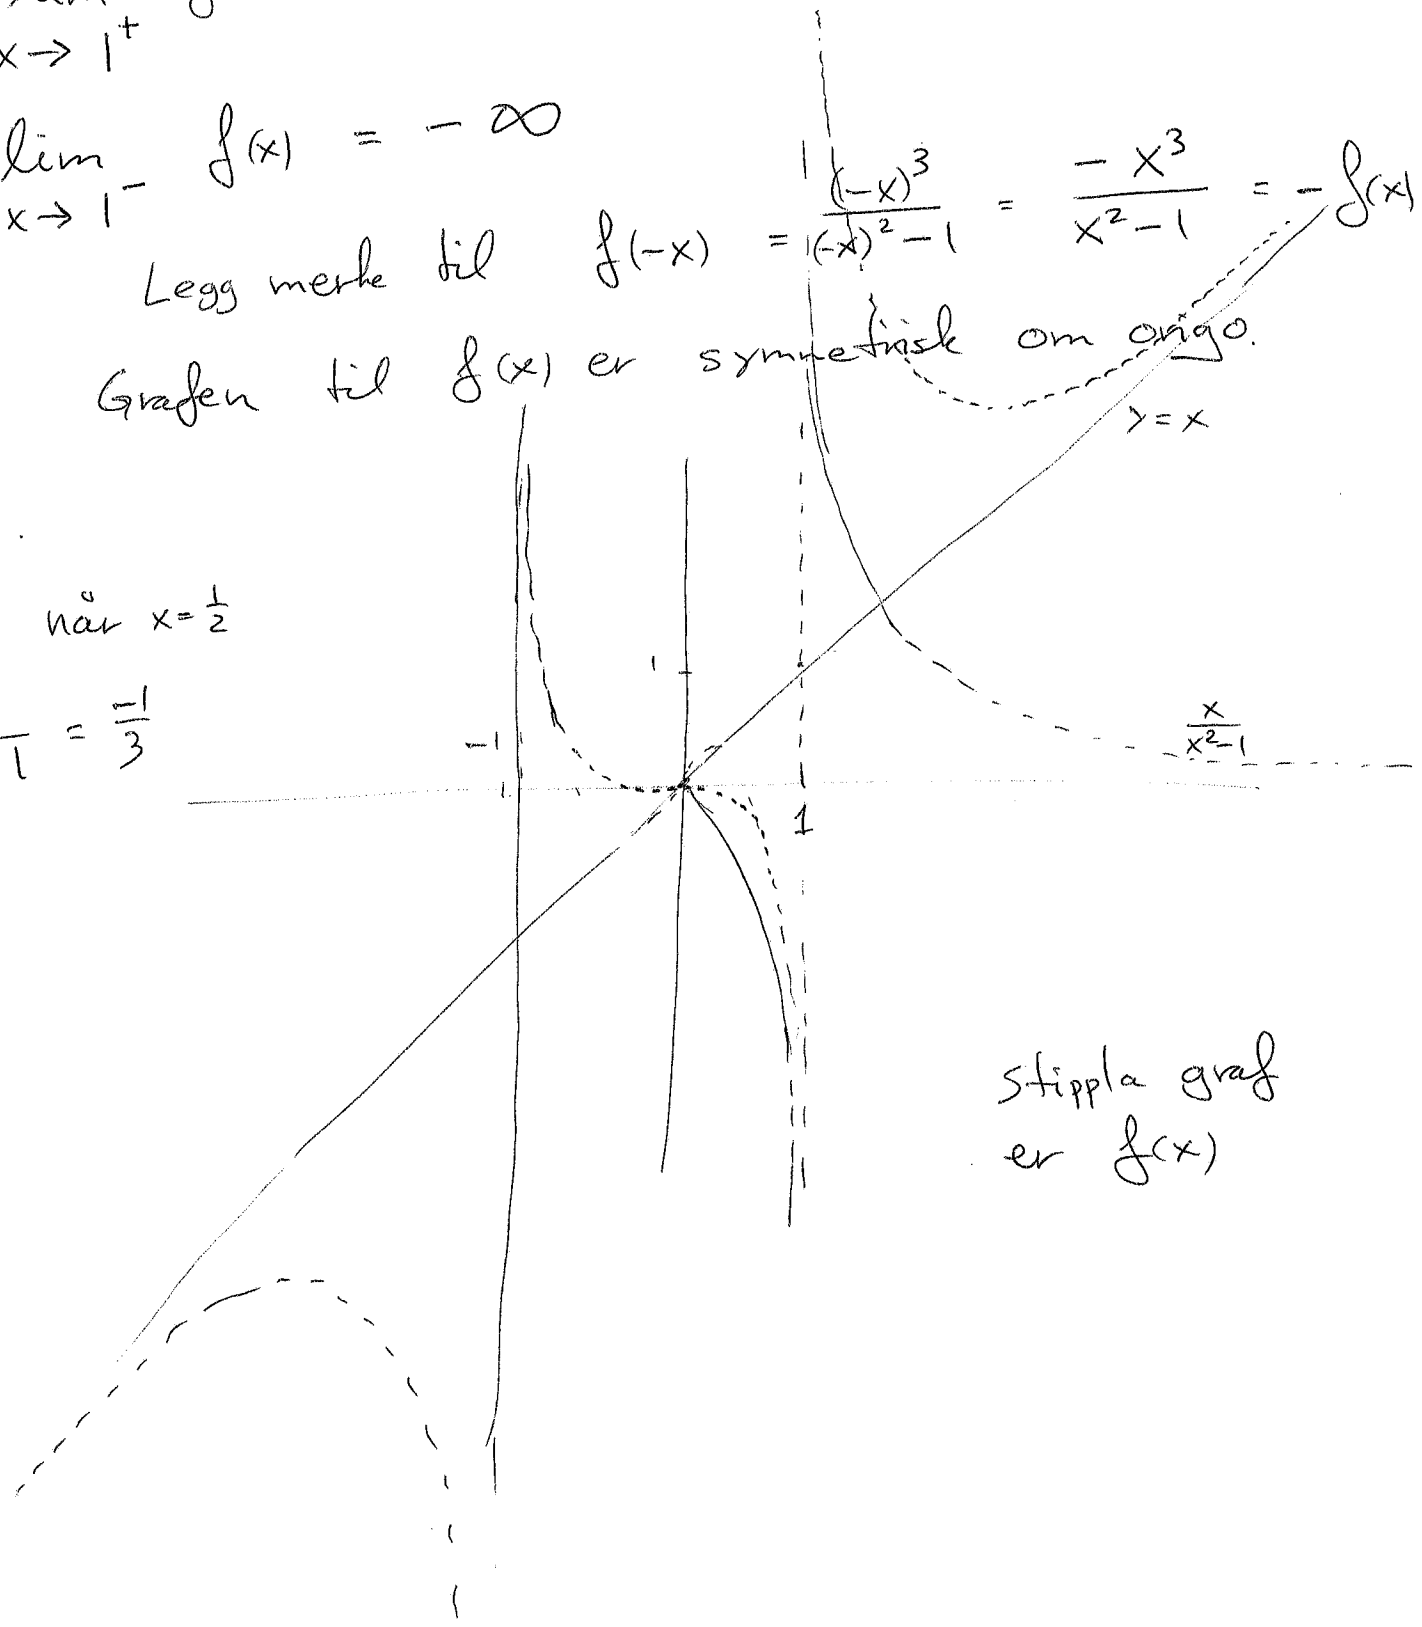 x → 1⁺
lim f(x) = - ∞
x → 1⁻
Legg merke til f(-x) = (-x)³/((-x)² - 1) = - x³/(x² - 1) = - f(x)
Grafen til f(x) er symmetrisk om origo.
y = x
når x = 1/2
1
1 = -1/3
-1
x/(x² - 1)
1
stippla graf
er f(x)